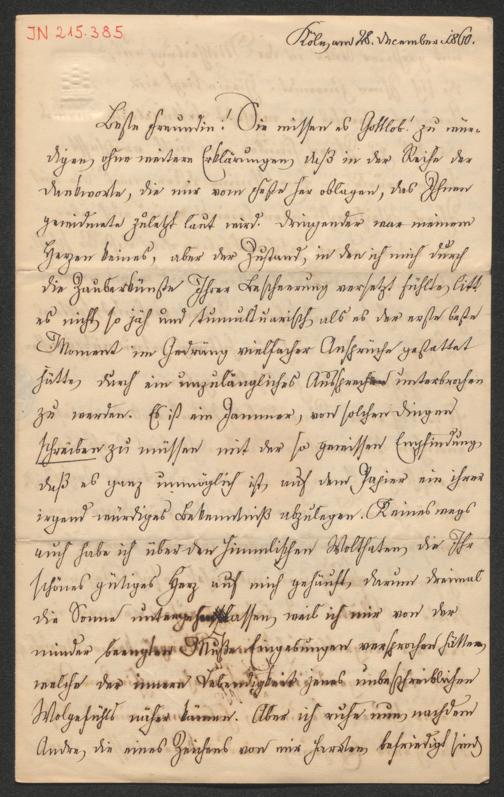 JN 215.385
Köln, am 28. December 1860.
Beste Freundin! Sie wissen es Gottlob! zu wür-
digen, ohne weitere Erklärungen, daß in der Reihe der
Dankworte, die mir vom Feste her oblagen, das Ihnen
gewidmete zuletzt laut wird. Dringender war meinem
Herzen keines, aber der Zustand, in den ich mich durch
die Zauberkünste Ihrer Bescheerung versetzt fühlte, litt
es nicht, so jäh und tumultuarisch, als es der erste beste
Moment im Gedräng vielfacher Ansprüche gestattet
hätte, durch ein unzulängliches Aussprechen unterbrochen
zu werden. Es ist ein Jammer, von solchen Dingen
schreiben zu müssen mit der so gewissen Empfindung,
daß es ganz unmöglich ist, auf dem Papier ein ihrer
irgend würdiges Bekenntniß abzulegen. Keineswegs
auch habe ich über den himmlischen Wolthaten, die Ihr
schönes gütiges Herz auf mich gehäuft, darum dreimal
die Sonne untergehen lassen, weil ich mir von der
minder beengten Muße Eingebungen versprochen hätte,
welche der innern Lebendigkeit jenes unbeschreiblichen
Wolgefühls näher kämen. Aber ich ruhe nun, nachdem
Andre, die eines Zeichens von mir harrten, befriedigt sind